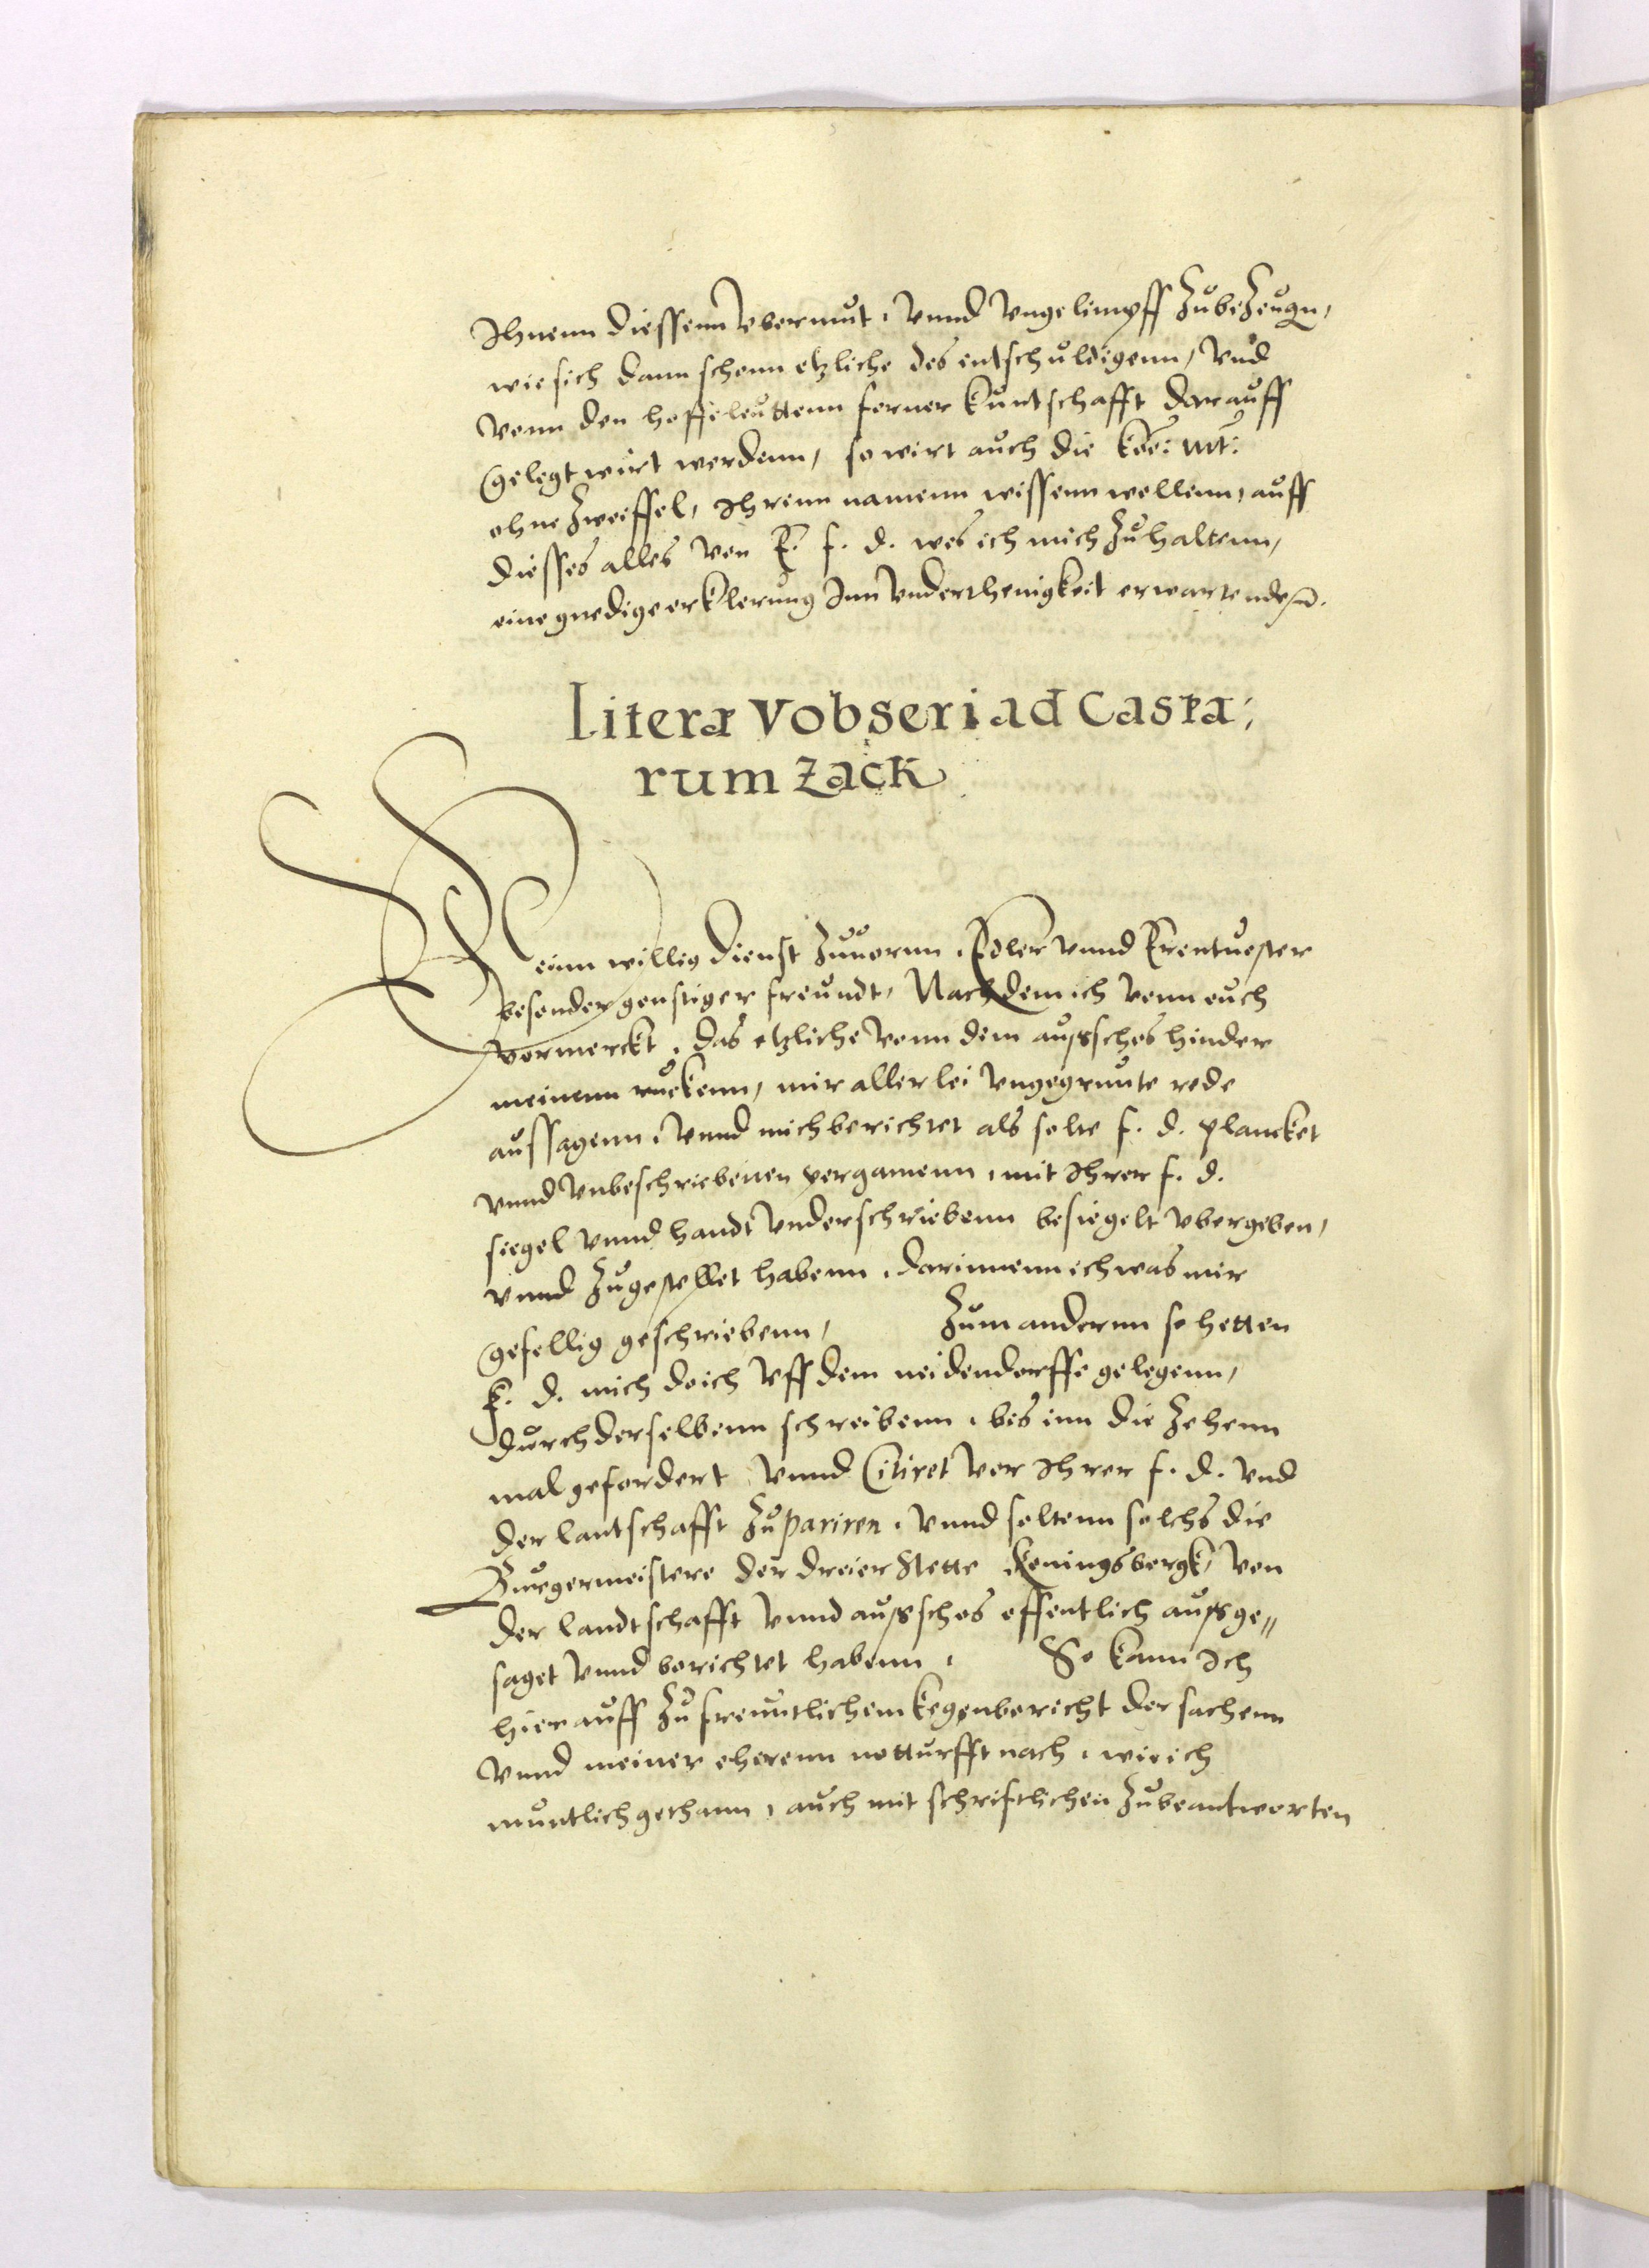 Ihnenn diessenn vbermut, vnnd vngelimpff zubezeugn,
wie sich dann schonn etzliche des entschuldigenn, vnd
vonn den hoffeleuttenn ferner kuntschafft darauff
gelegt wurt werdenn, so wirt auch die koe: mt:
ohne zweiffel, Ihrenn namenn wissenn wollenn, auff
diesses alles von E. f. d. wes ich mich zuhaltenn,
eine gnedige erklerung Inn vnderthenigkeit erwartende
Literæ Vobseri ad Caspa:
rum Zack
Meinn willig dienst zuuornn, Edler vnnd Erentuester
besonder gonstiger freundt, Nachdem ich vonn euch
vormerckt, das etzliche vonn dem ausschos hinder
meinenn ruckenn, mir allerlei vngegrunte rede
aussagenn, vnnd mich berichtet als solte f. d. plancket
vnnd vnbeschriebenen pergamenn, mit Ihrer f. d.
siegel vnnd handt vnderschriebenn besiegelt vbergeben,
vnnd zugestellet habenn, darinnenn ich was mir
gefellig geschriebenn, Zum andernn so hetten
f. d. mich do ich vff dem neidendorffe gelegenn,
durch derselbenn schreibenn, bis inn die zehenn
mal gefordert vnnd Citiret vor Ihrer f. d. vnd
der lantschafft zu pariren, vnnd soltenn solchs die
Burgermeistere der dreier Stette Koningsbergk, von
der landtschafft vnnd ausschos offentlich aussge-
saget vnnd berichtet habenn, So kann Ich
hierauff zu freuntlichem kegenbericht der sachenn
vnnd meiner eherenn notturfft nach, wie ich
muntlich gethann, auch mit schrifftlichen zubeantworten